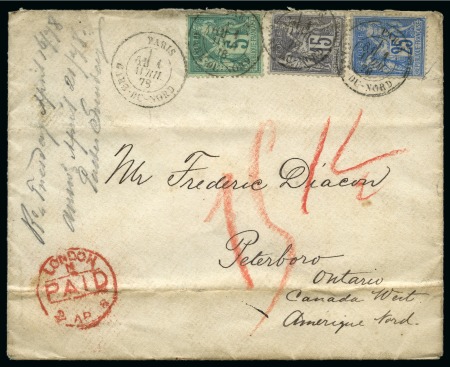 PARIS
AVRIL
78
GARE-DU-NORD
5
15
25
DU-NORD
Mr Frederic Diacon
Peterboro
Ontario
Canada West.
Amérique Nord.
15
LONDON
N
PAID
2 AP 8
April
April